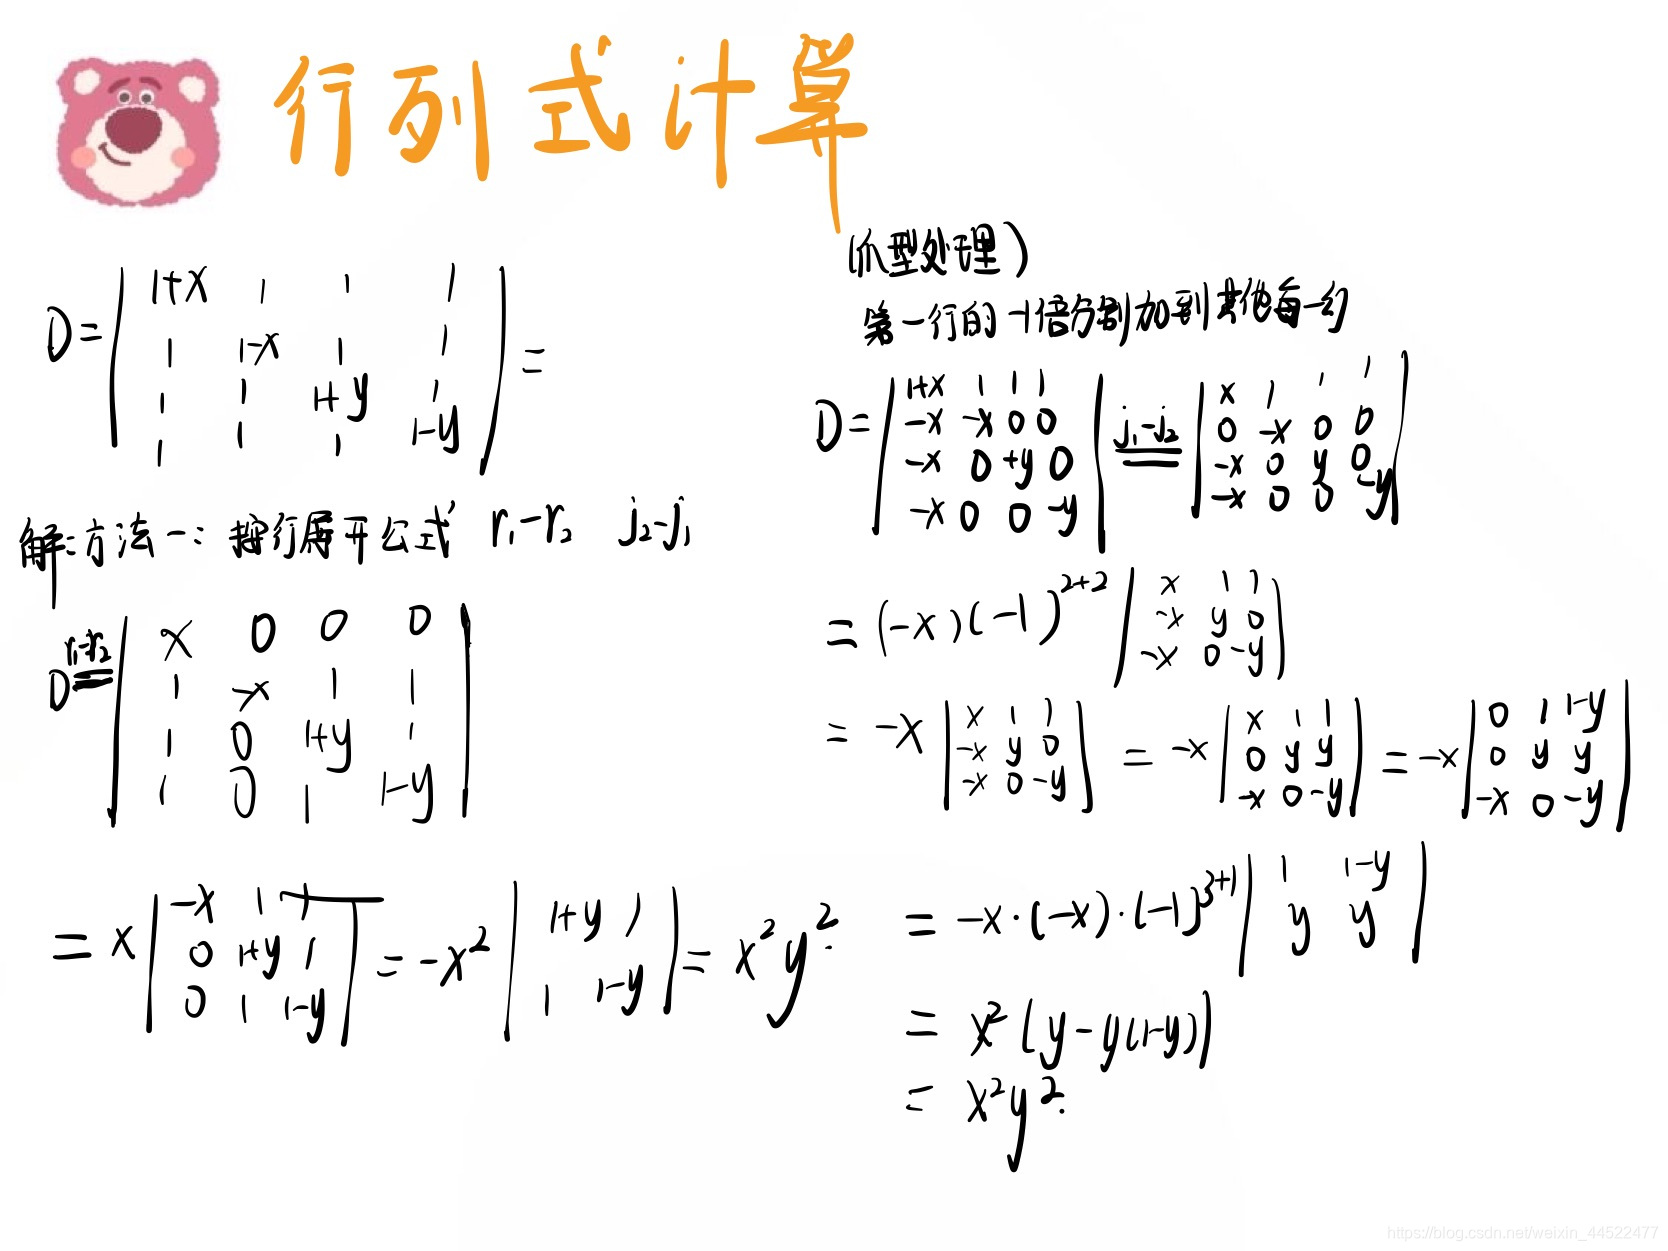 行列式计算
D = | 1+x 1 1 1 |
| 1 1-x 1 1 | =
| 1 1 1+y 1 |
| 1 1 1 1-y |
解:方法一: 按行展开公式 r₁-r₂ j₂-j₁
D r₁-r₂ == | x 0 0 0 |
| 1 -x 1 1 |
| 1 0 1+y 1 |
| 1 0 1 1-y |
= x | -x 1 1 | = -x² | 1+y 1 | = x²y².
| 0 1+y 1 | | 1 1-y |
| 0 1 1-y |
(爪型处理)
第一行的-1倍分别加到其他每一行
D = | 1+x 1 1 1 | j₁-j₂ == | x 1 1 1 |
| -x -x 0 0 | | 0 -x 0 0 |
| -x 0 +y 0 | | -x 0 y 0 |
| -x 0 0 -y | | -x 0 0 -y |
= (-x)(-1)²⁺² | x 1 1 |
| -x y 0 |
| -x 0 -y |
= -x | x 1 1 | = -x | x 1 1 | = -x | 0 1 1-y |
| -x y 0 | | 0 y y | | 0 y y |
| -x 0 -y | | -x 0 -y | | -x 0 -y |
= -x·(-x)·(-1)³⁺¹ | 1 1-y |
| y y |
= x²(y-y(1-y))
= x²y².
https://blog.csdn.net/weixin_44522477